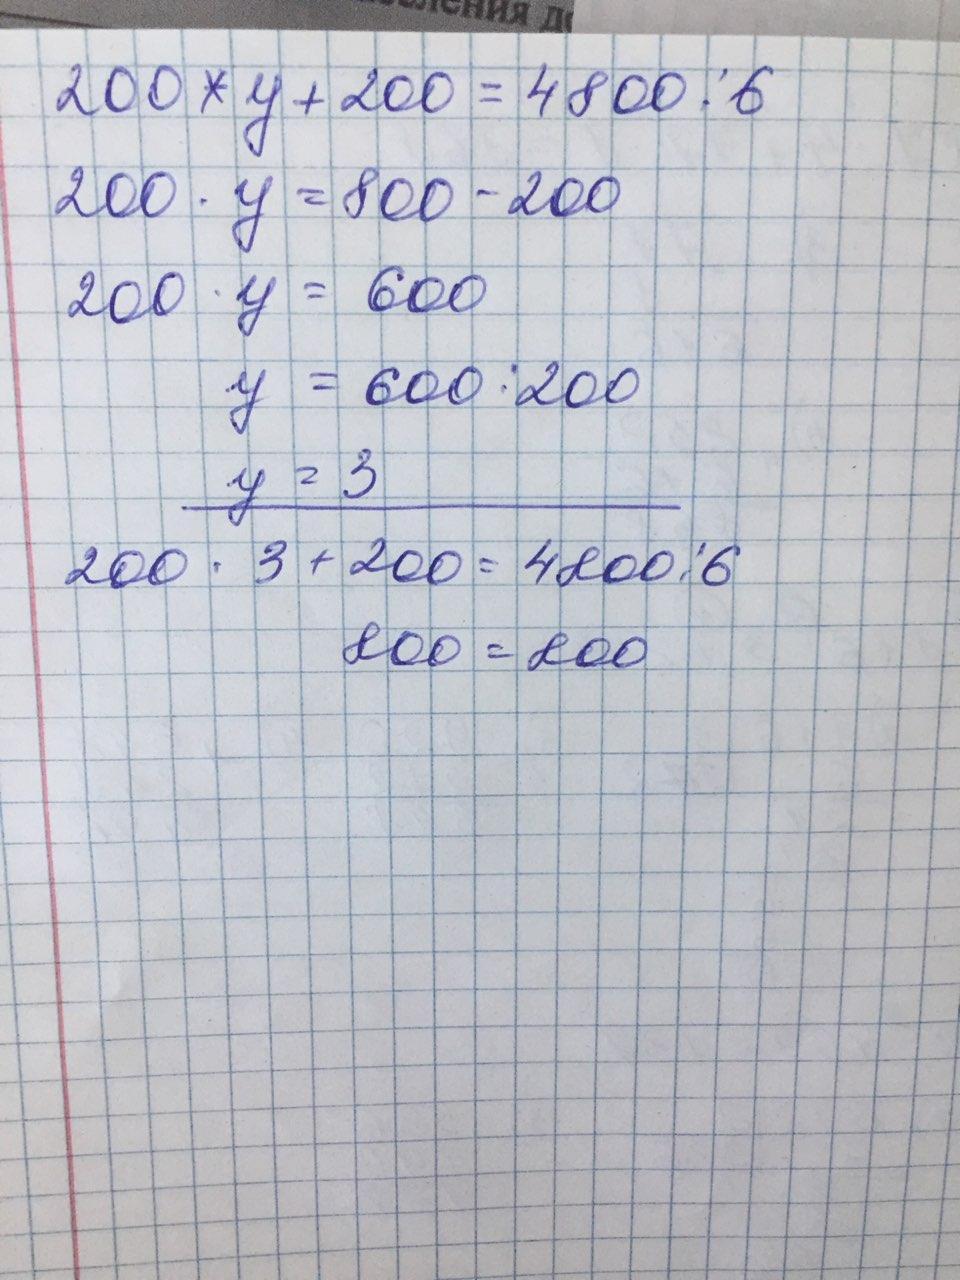 селения до
200 * y + 200 = 4800 : 6
200 · y = 800 - 200
200 · y = 600
y = 600 : 200
y = 3
200 · 3 + 200 = 4800 : 6
800 = 800